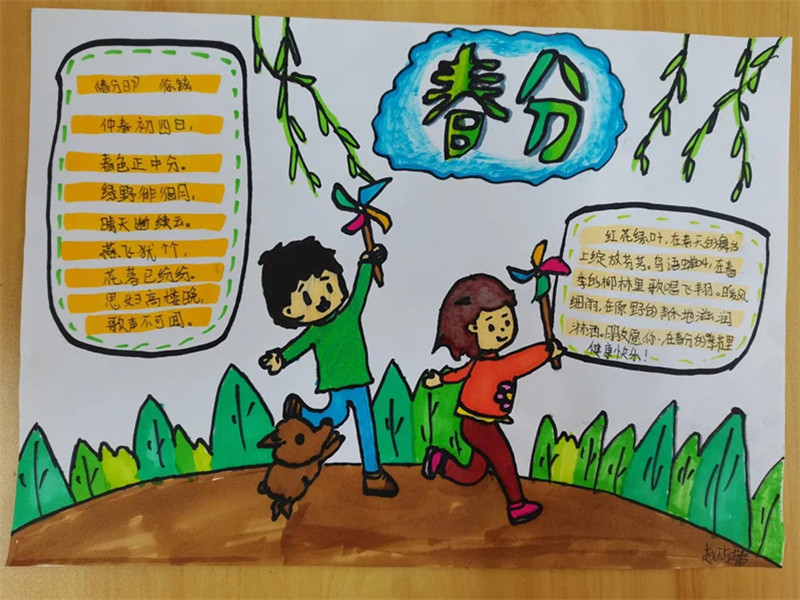 春分
《春分日》 徐铉
仲春初四日，
春色正中分。
绿野徘徊月，
晴天断续云。
燕飞犹个个，
花落已纷纷。
思妇高楼晚，
歌声不可闻。
红花绿叶，在春天的舞台
上绽放芬芳。鸟语蝉叫，在春
季的柳林里歌唱飞翔。暖风
细雨，在原野的耕地滋润
淋洒。愿你：在春分的季节里
健康快乐！